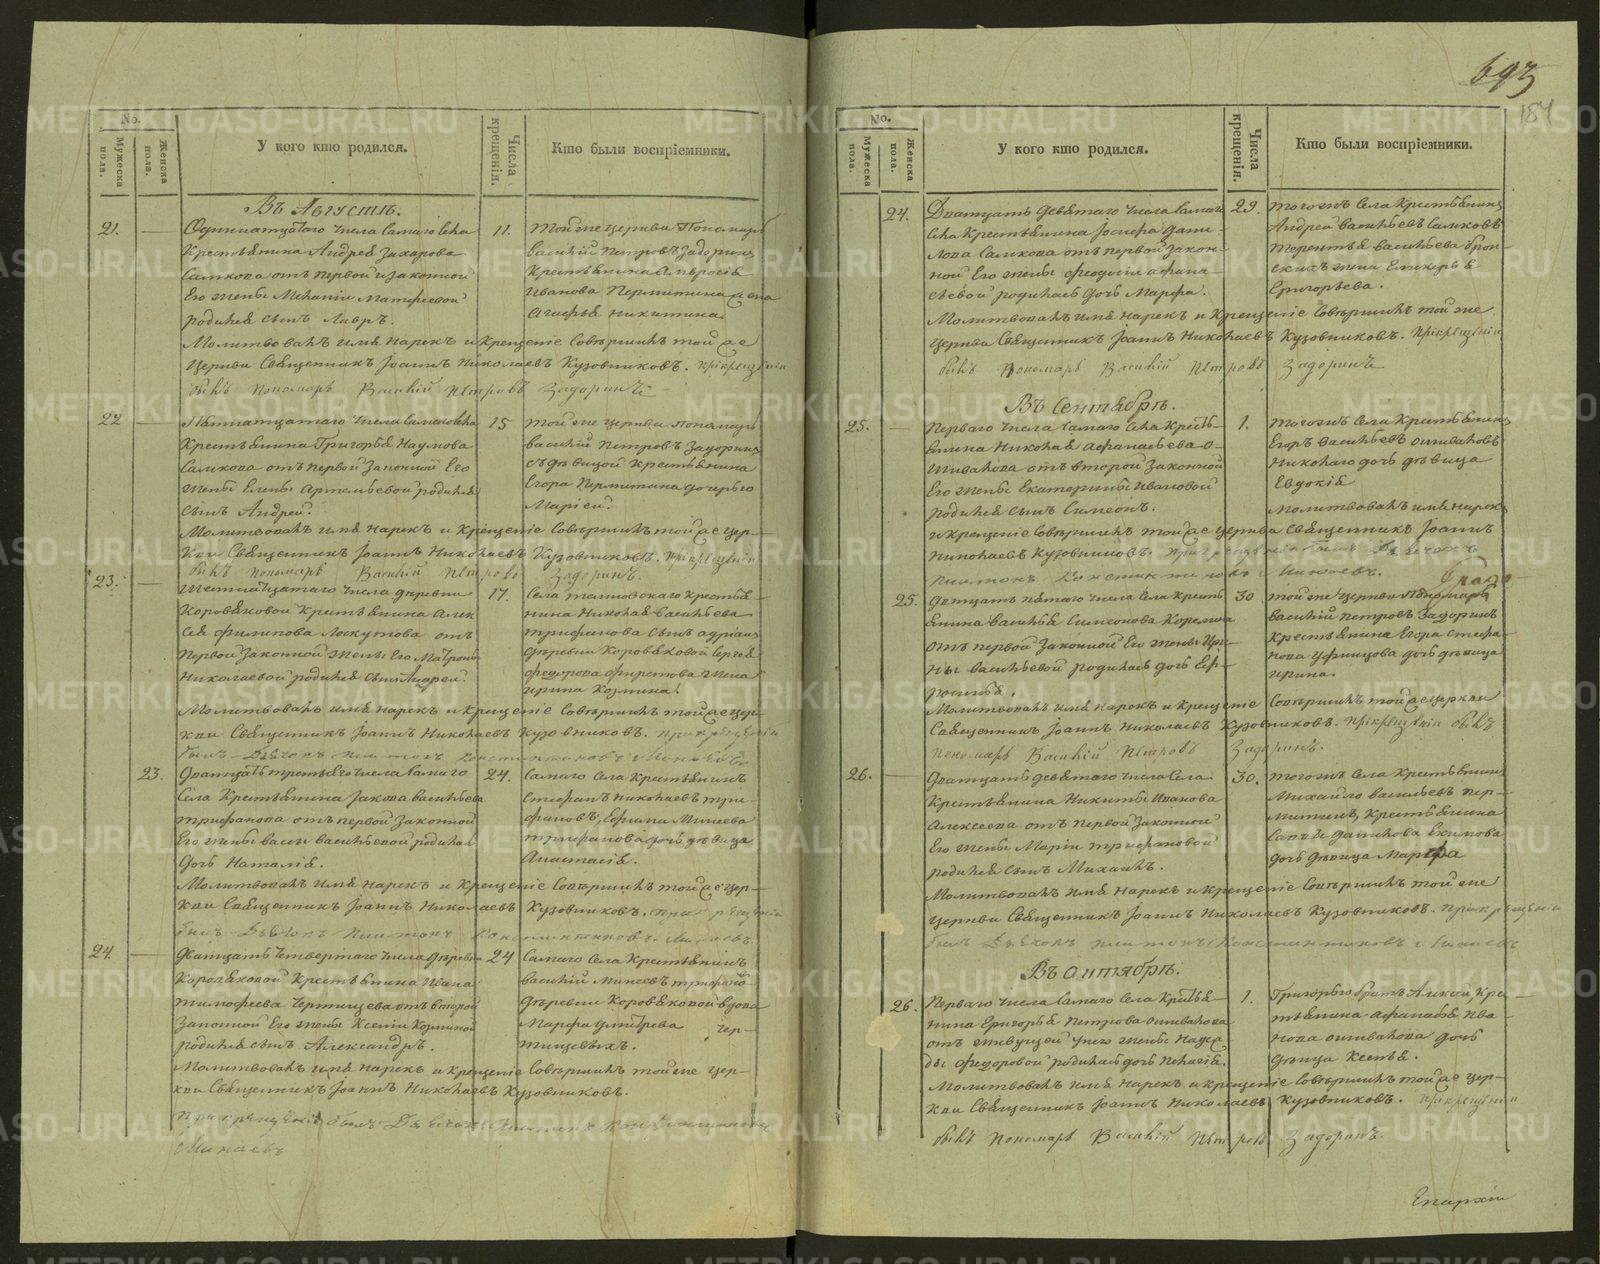 693
184
No.
Мужеска пола.
Женска пола.
У кого кто родился.
Числа крещенія.
Кто были воспріемники.
Въ Августѣ.
21.
Одиннатцатаго числа самаго села
Крестьянина Андрея Захарова
Салкова отъ первой законной
Его жены Меланіи Матфеевой
родился сынъ Лавръ.
11.
той же церкви Пономарь
Василій Петровъ Задоринъ
Крестьянина Амвросія
Иванова Пермитина жена
Агафья Никитина.
Молитвовалъ имя нарекъ и Крещеніе совершилъ той же
церкви Священникъ Іоаннъ Николаевъ Кузовниковъ. При крещеніи
былъ пономарь Василій Петровъ Задоринъ
22
Пятнатцатаго числа самаго села
Крестьянина Григорья Наумова
Салкова отъ первой Законной Его
жены Елены Артемьевой родился
сынъ Андрей.
15
той же церкви Пономарь
Василій Петровъ Задоринъ
съ дѣвицой крестьянина
Егора Пермитина дочерью
Маріей.
Молитвовалъ имя нарекъ и Крещеніе совершилъ той же цер-
кви Священникъ Іоаннъ Николаевъ Кузовниковъ. При крещеніи
былъ пономарь Василій Петровъ Задоринъ.
23.
числа деревни
Коровяковой Крестьянина Алек
сея Филипова Лоскутова отъ
первой Законной жены Его Матроны
Николаевой родился сынъ Андрей.
17.
Села крестья-
нина Николая Васильева
Трифанова сынъ Адріанъ
деревни Коровяковой Сергея
Федорова жена
Ирина Козмина.
Молитвовалъ имя нарекъ и Крещеніе совершилъ той же цер-
кви Священникъ Іоаннъ Николаевъ Кузовниковъ. При крещеніи
былъ Дьячокъ Платонъ Константиновъ
23.
Дватцать третьяго числа самаго
Села Крестьянина Іакова Васильева
Трифанова отъ первой Законной
Его жены Васильевой родилась
Дочь Наталія.
24.
Самаго Села Крестьянинъ
Стефанъ Николаевъ Три-
фановъ, Ефима Минеева
Трифанова дочь дѣвица
Анастасія.
Молитвовалъ имя нарекъ и Крещеніе совершилъ той же цер-
кви Священникъ Іоаннъ Николаевъ Кузовниковъ. При крещеніи
былъ Дьячокъ Платонъ Константиновъ.
24.
Дватцать Четвертаго числа деревни
Коровяковой Крестьянина Ивана
Тимофеева Чертищева отъ второй
Законной Его жены Ксеніи Козминой
родился сынъ Александръ.
24
Самаго Села Крестьянинъ
Василій Минеевъ
деревни Коровяковой вдова
Марфа Дмитрева Чер-
тищевыхъ.
Молитвовалъ имя нарекъ и крещеніе совершилъ той же цер-
кви Священникъ Іоаннъ Николаевъ Кузовниковъ.
При крещеніи былъ Дьячокъ Платонъ Константиновъ
No.
Мужеска пола.
Женска пола.
У кого кто родился.
Числа крещенія.
Кто были воспріемники.
24.
Дватцать девятаго числа самаго
села Крестьянина Іосифа Дани-
лова Салкова отъ первой Закон-
ной Его жены Феодосіи Афана-
сьевой родилась дочь Марфа.
29.
того жъ Села Крестьянинъ
Андрей Васильевъ Салковъ
Терентья Васильева
жена
Григорьева.
Молитвовалъ имя нарекъ и Крещеніе совершилъ той же
церкви Священникъ Іоаннъ Николаевъ Кузовниковъ. При крещеніи
былъ Пономарь Василій Петровъ Задоринъ
Въ Сентябрѣ.
25.
Перваго числа самаго села Кресть-
янина Николая Афанасьева
отъ второй Законной
Его жены Екатерины Ивановой
родился сынъ Симеонъ.
1.
того жъ Села Крестьянинъ
Егоръ Васильевъ
Николаю дочь дѣвица
Евдокія
Молитвовалъ имя нарекъ
и крещеніе совершилъ той же церкви Священникъ Іоаннъ
Николаевъ Кузовниковъ. При крещеніи былъ Дьячокъ
Платонъ Константиновъ
25.
Дватцать пятаго числа Села Кресть
янина Василья Симеонова Корелина
отъ первой Законной Его жены Ири-
ны Васильевой родилась дочь Еф-
росинья.
30
той же церкви Пономарь
Василій Петровъ Задоринъ
Крестьянина Егора Стефа-
нова дочь дѣвица
Ирина.
Молитвовалъ имя нарекъ и крещеніе совершилъ той же церкви
Священникъ Іоаннъ Николаевъ Кузовниковъ. При крещеніи былъ
пономарь Василій Петровъ Задоринъ.
26.
Дватцать девятаго числа Села
Крестьянина Никиты Иванова
Алексеева отъ первой Законной
Его жены Маріи Трифановой
родился сынъ Михаилъ.
30.
того жъ Села Крестьянинъ
Михайло Васильевъ Пер-
митинъ, Крестьянина
Екимова
дочь дѣвица Марфа
Молитвовалъ имя нарекъ и крещеніе совершилъ той же
церкви Священникъ Іоаннъ Николаевъ Кузовниковъ. При крещеніи
былъ Дьячокъ Платонъ Константиновъ
Въ октябрѣ.
26.
Перваго числа самаго Села Кресть-
нина Григорья Петрова
отъ живущей жены Надеж-
ды Федоровой родилась дочь Пелагія.
1.
Григорью братъ Алексей, Кре-
стьянина Афанасья Ива-
нова дочь
дѣвица Ксенья.
Молитвовалъ имя нарекъ и крещеніе совершилъ той же цер-
кви Священникъ Іоаннъ Николаевъ Кузовниковъ. При крещеніи
былъ пономарь Василій Петровъ Задоринъ.
Епархіи
METRIKI.GASO-URAL.RU